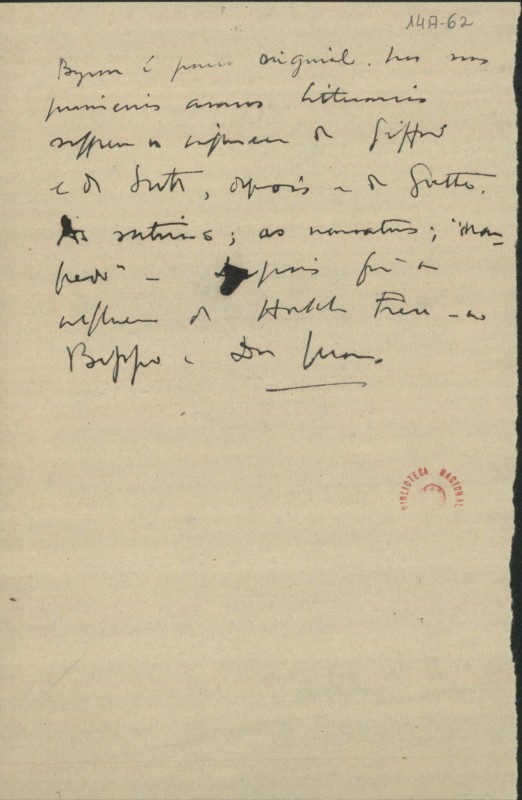 14A-62
Byron é pouco original. Nos seus
primeiros annos litterarios
soffreu a influencia de Gifford
e de Scott, depois a de Goethe.
As satiras; as narrativas; "Man-
fredo" — Depois foi a
influencia de Hookham Frere — a
Beppo e Don Juan.
BIBLIOTECA NACIONAL